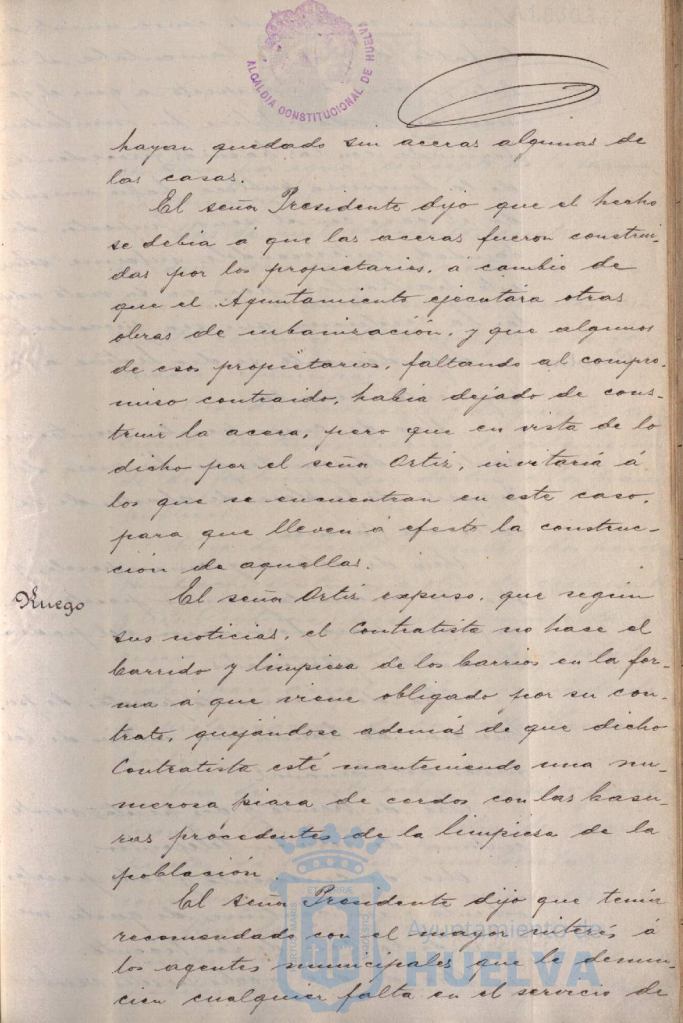 ALCALDIA CONSTITUCIONAL DE HUELVA
hayan quedado sin aceras algunas de
las casas.
El señor Presidente dijo que el hecho
se debia á que las aceras fueron construi-
das por los propietarios, á cambio de
que el Ayuntamiento ejecutára otras
obras de urbanización, y que algunos
de esos propietarios, faltando al compro-
miso contraido, habia dejado de cons-
truir la acera, pero que en vista de lo
dicho por el señor Ortiz, invitaria á
los que se encuentran en este caso,
para que lleven á efecto la construc-
ción de aquellas.
Ruego
El señor Ortiz expuso, que según
sus noticias, el Contratista no hace el
barrido y limpieza de los barrios en la for-
ma á que viene obligado por su con-
trato, quejándose además de que dicho
Contratista esté manteniendo una nu-
merosa piara de cerdos con las basu-
ras procedentes de la limpieza de la
población.
El señor Presidente dijo que tenia
recomendado con el mayor interés, á
los agentes municipales que le denun-
cien cualquier falta en el servicio de
Ayuntamiento de
HUELVA